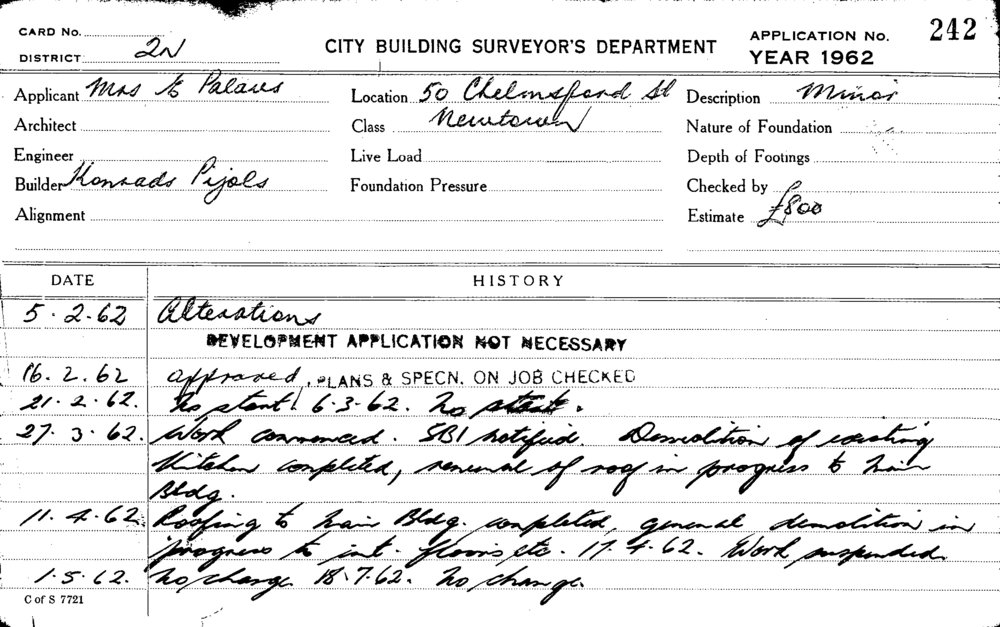 CARD No.
DISTRICT 2N
CITY BUILDING SURVEYOR'S DEPARTMENT
APPLICATION No. 242
YEAR 1962
Applicant Mrs E Palaus Location 50 Chelmsford St Description Minor
Architect Class Newtown Nature of Foundation
Engineer Live Load Depth of Footings
Builder Konrads Pijols Foundation Pressure Checked by
Alignment Estimate £800
DATE HISTORY
5.2.62 Alterations
DEVELOPMENT APPLICATION NOT NECESSARY
16.2.62 approved, PLANS & SPECN. ON JOB CHECKED
21.2.62. No start! 6.3.62. No start.
27.3.62. Work commenced. SBI notified. Demolition of existing
kitchen completed, renewal of roof in progress to main
Bldg.
11.4.62. Roofing to main Bldg. completed, general demolition in
progress to int. floors etc. 17.4.62. Work suspended.
1.5.62. No change. 18.7.62. No change.
C of S 7721